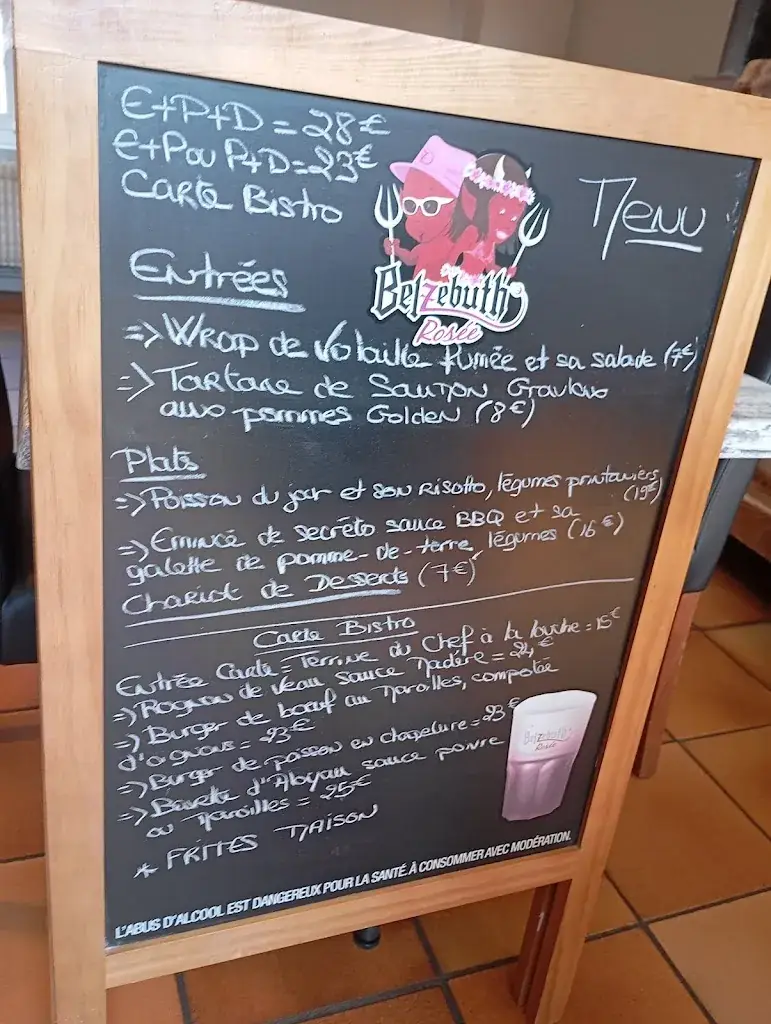 E+P+D = 28€
E+P ou P+D = 23€
Carte Bistro
Menu
Belzebuth
Rosée
Entrées
=> Wrap de Volaille fumée et sa salade (7€)
=> Tartare de Saumon Gravlax
aux pommes Golden (8€)
Plats
=> Poisson du jour et son Risotto, légumes printaniers
(19€)
=> Emincé de secréto sauce BBQ et sa
galette de pomme-de-terre, légumes (16€)
Chariot de Desserts (7€)
Carte Bistro
Entrée Carte = Terrine du Chef à la louche = 15€
=> Rognon de Veau sauce Madère = 24€
=> Burger de boeuf au Maroilles, compotée
d'oignons = 23€
=> Burger de poisson en chapelure = 23€
=> Bavette d'Aloyau sauce poivre
ou Maroilles = 25€
* FRITES MAISON
Belzebuth
Rosée
L'ABUS D'ALCOOL EST DANGEREUX POUR LA SANTÉ. À CONSOMMER AVEC MODÉRATION.